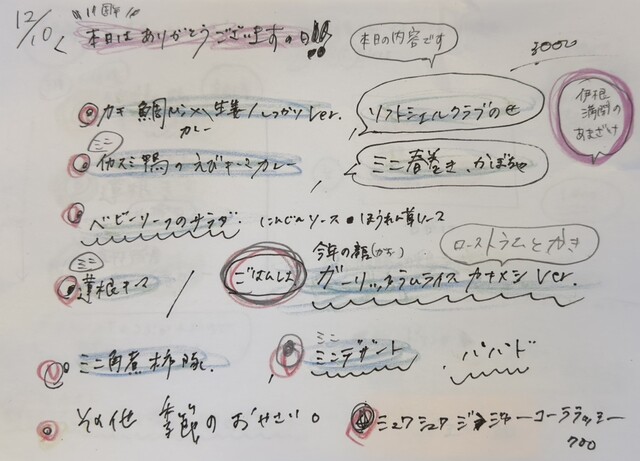 12/10 11周年
本日はありがとうございますの日!!
本日の内容です
3000
カキ 鯛 生姜しっかり ver.
カレー
ソフトシェルクラブのせ
伊根
満開の
あまざけ
ミニ
鴨のえびキーマカレー
ミニ春巻き、かぼちゃ
ベビーリーフのサラダ. にんじんソース ほうれん草ソース
ミニ
蓮根キーマ
ごはんは
今年の顔
ローストラムとかき
ガーリックラムライス カキメシ ver.
ミニ角煮 豚.
ミニ
ミニデザート
パパド
その他 季節のおやさい。
シュワシュワ ジンジャーコーララッシー
700